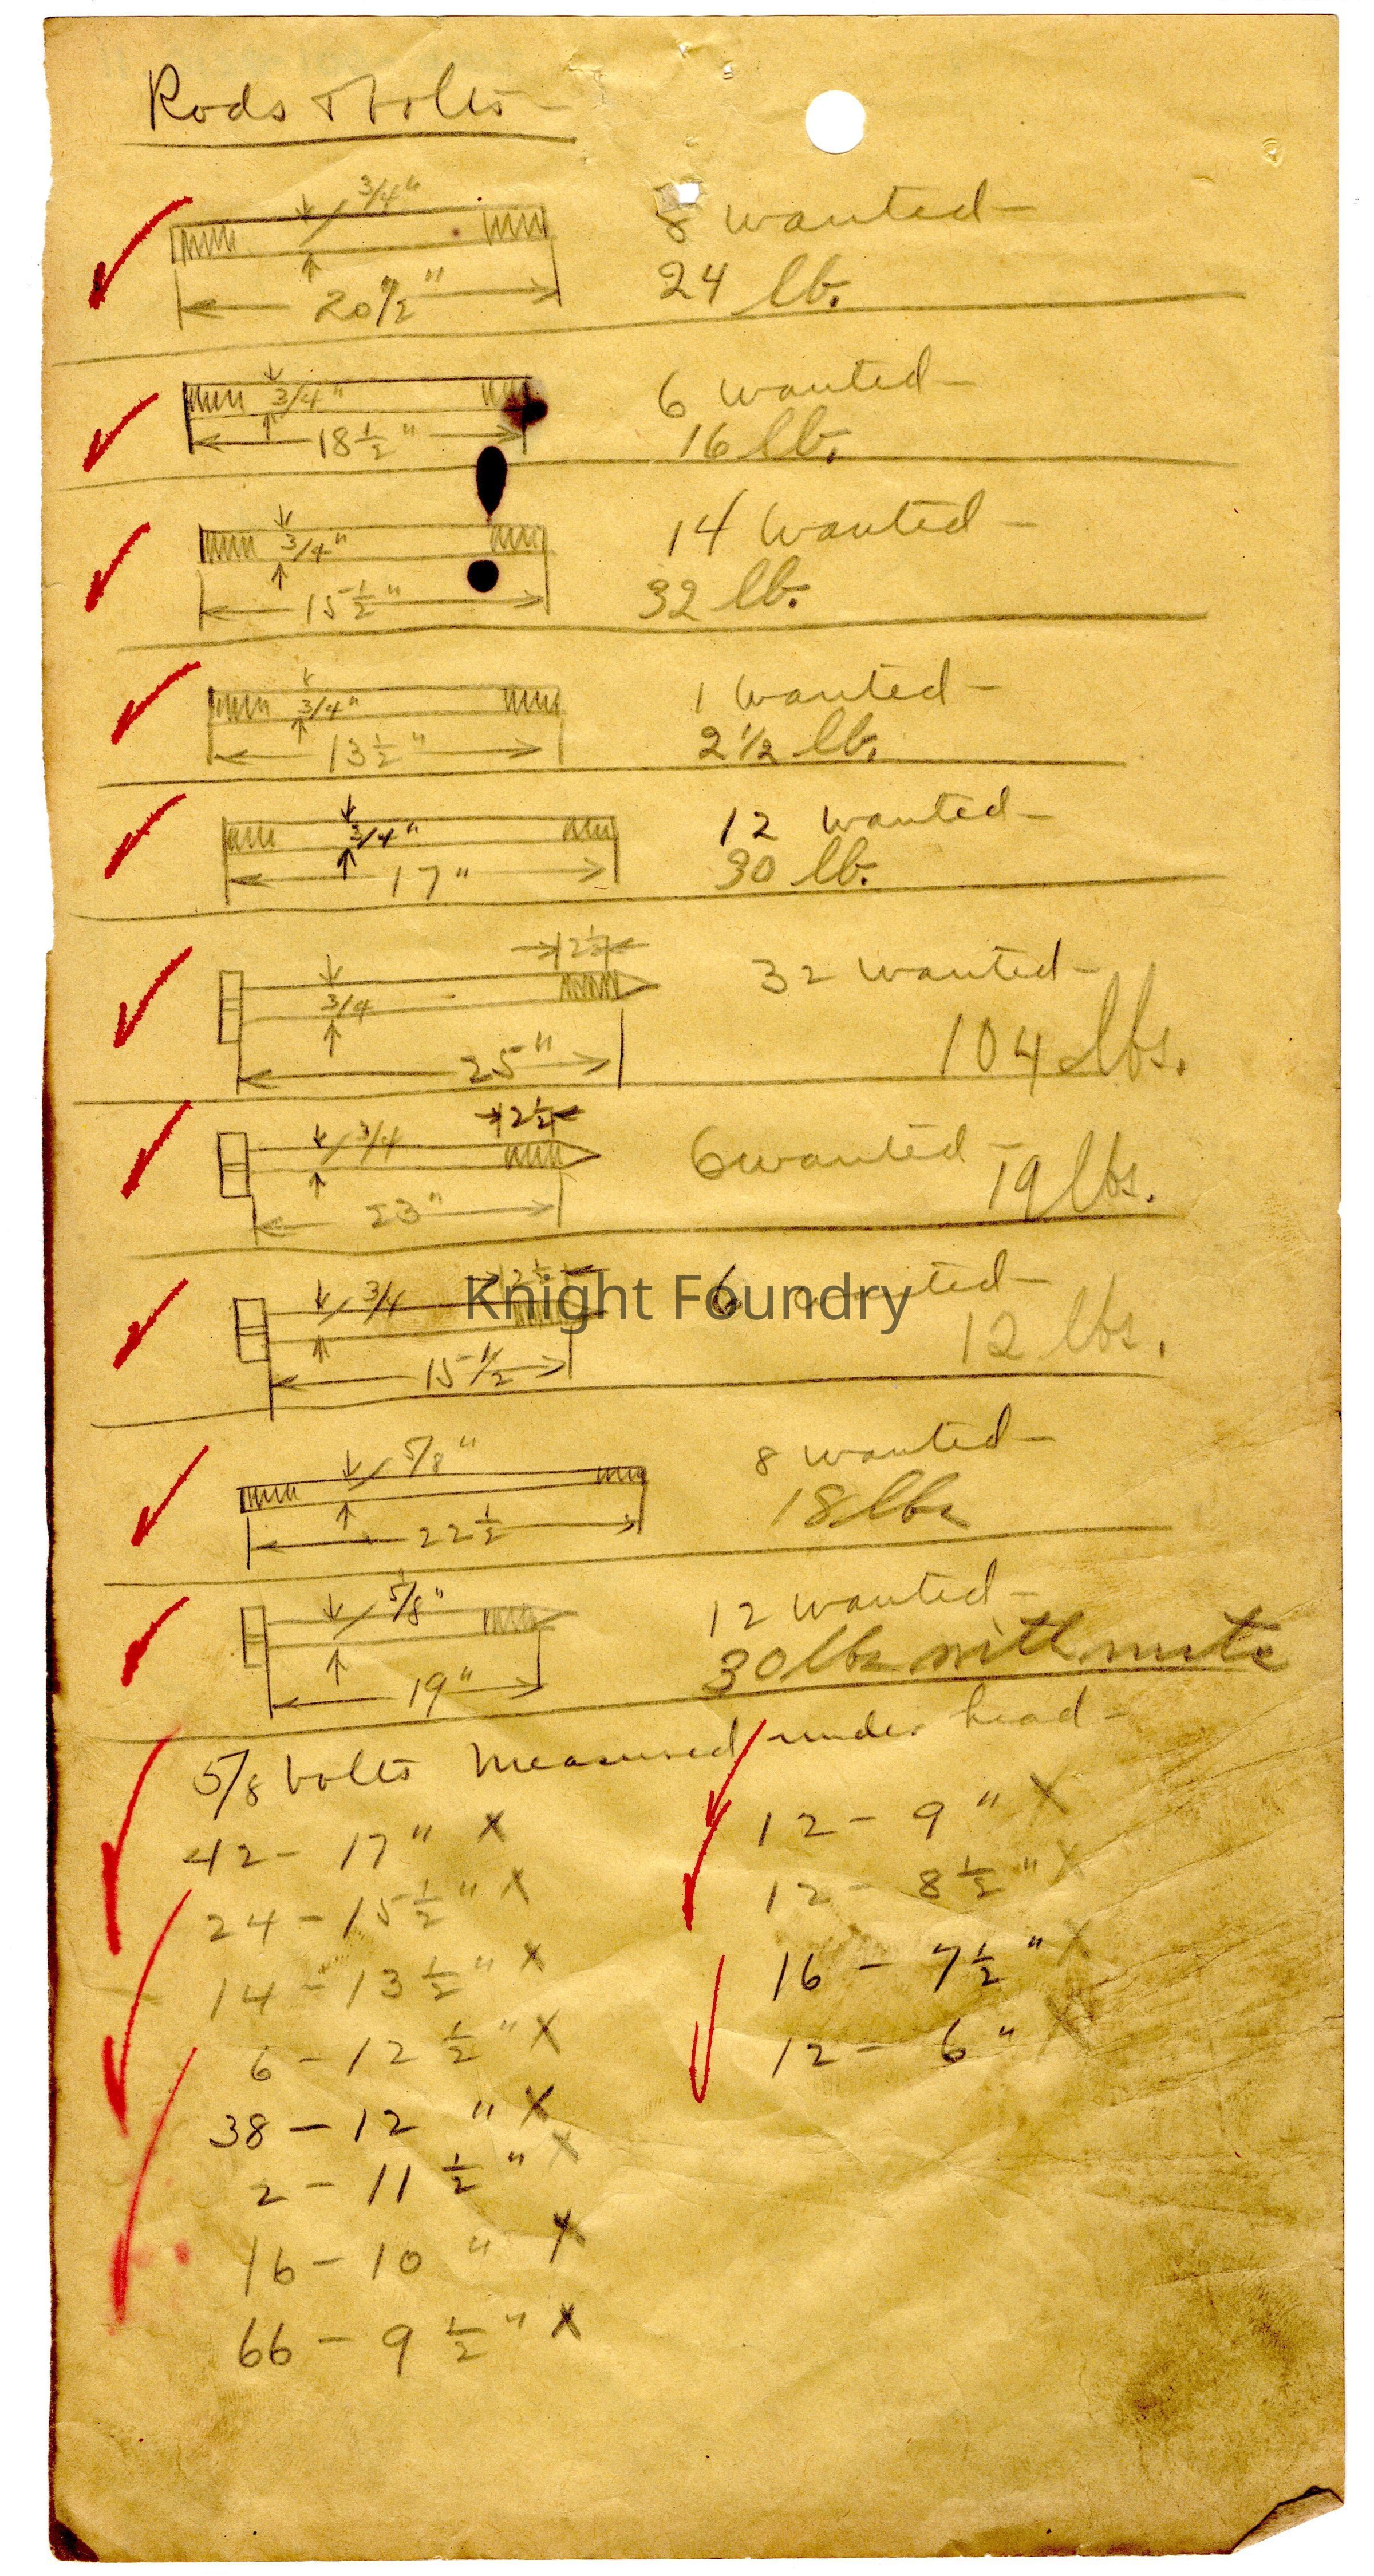 Rods & bolts-
3/4"
8 wanted-
20 1/2"
24 lb.
3/4"
6 wanted-
18 1/2"
16 lb.
3/4"
14 wanted-
15 1/2"
32 lb.
3/4"
1 wanted-
13 1/2"
2 1/2 lb.
3/4"
12 wanted-
17"
30 lb.
2 1/2
3/4
32 wanted-
25"
104 lbs.
2 1/2
3/4
6 wanted-
23"
19 lbs.
2 1/2
3/4
6 wanted-
Knight Foundry
15 1/2
12 lbs.
5/8"
8 wanted-
22 1/2
18 lbs
5/8"
12 wanted-
19"
30 lbs with nuts
5/8 bolts measured under head-
42- 17" X
24-15 1/2" X
14-13 1/2" X
6-12 1/2" X
38-12" X
2-11 1/2" X
16-10" X
66-9 1/2" X
12-9" X
12-8 1/2" X
16-7 1/2" X
12-6" X